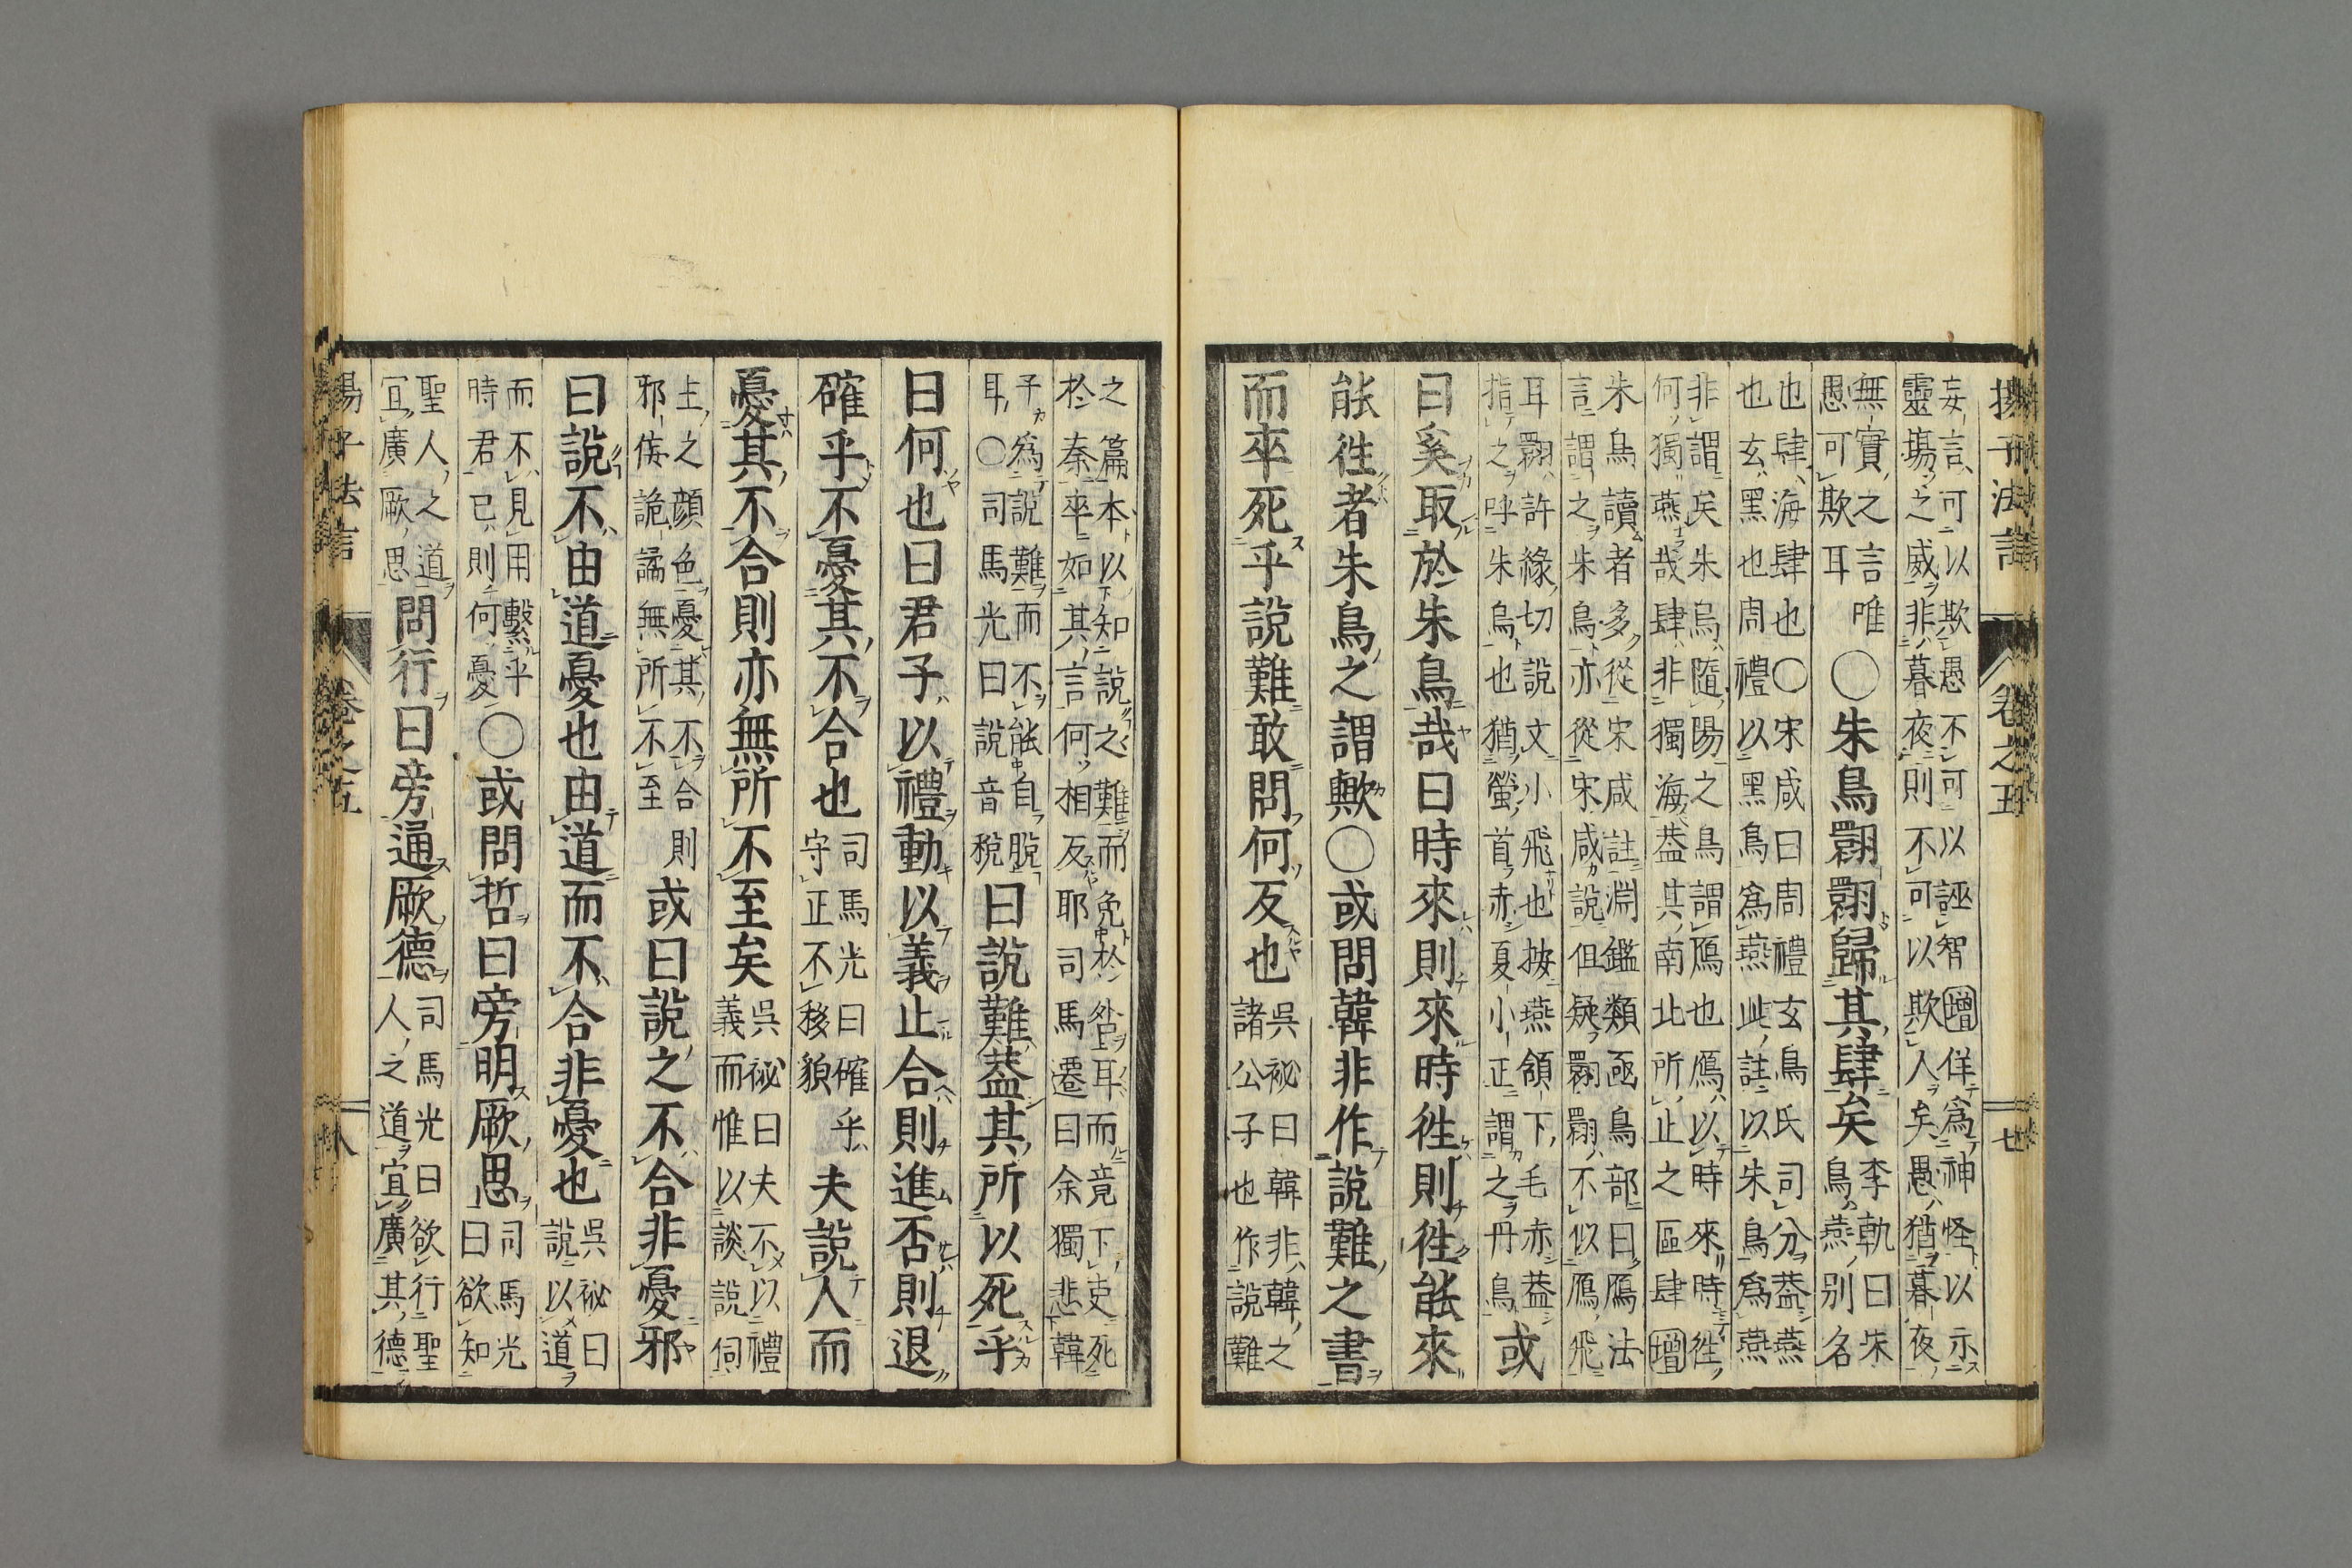 揚子法言 卷之五 七
妄言可以欺愚不可以誣智增佯爲神怪以示
靈場之威非暮夜則不可以欺人矣愚猶暮夜
無實之言唯
愚可欺耳
○朱鳥翾翾歸其肆矣
李軌曰朱
鳥燕別名
也肆海肆也○宋咸曰周禮玄鳥氏司分蓋燕
也玄黑也周禮以黑鳥爲燕此註以朱鳥爲燕
非謂矣朱鳥隨陽之鳥謂鴈也鴈以時來時徃
何獨燕哉肆非獨海蓋其南北所止之區肆增
朱鳥讀者多從宋咸註淵鑑類函鳥部曰鴈法
言謂之朱鳥亦從宋咸說但疑翾翾不似鴈飛
耳翾許緣切說文小飛也按燕頷下毛赤蓋
指之呼朱鳥也猶螢首赤夏小正謂之丹鳥
或
曰奚取於朱鳥哉曰時來則來時徃則徃能來
能徃者朱鳥之謂歟○或問韓非作說難之書
而卒死乎說難敢問何反也
吳祕曰韓非韓之
諸公子也作說難
之篇本以知說之難而免於咎耳而竟下吏死
於秦卒如其言何相反耶司馬遷曰余獨悲韓
子爲說難而不能自脫
耳○司馬光曰說音稅
曰說難蓋其所以死乎
曰何也曰君子以禮動以義止合則進否則退
確乎不憂其不合也
司馬光曰確乎
守正不移貌
夫說人而
憂其不合則亦無所不至矣
吳祕曰夫不以禮
義而惟以談說伺
上之顔色憂其不合則
邪佞詭譎無所不至
或曰說之不合非憂邪
曰說不由道憂也由道而不合非憂也
吳祕曰
說以道
而不見用繫乎
時君已則何憂
○或問哲曰旁明厥思
司馬光
曰欲知
聖人之道
宜廣厥思
問行曰旁通厥德
司馬光曰欲行聖
人之道宜廣其德
揚子法言 卷之五 八